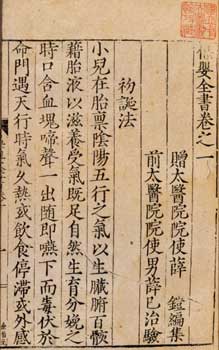 保嬰全書卷之一
贈太醫院院使薛 鎧編集
前太醫院院使男薛己治驗
初誕法
小兒在胎稟陰陽五行之氣以生臟腑百骸
藉胎液以滋養受氣既足自然生育分娩之
時口含血塊啼聲一出隨即嚥下而毒伏於
命門遇天行時氣久熱或飲食停滯或外感